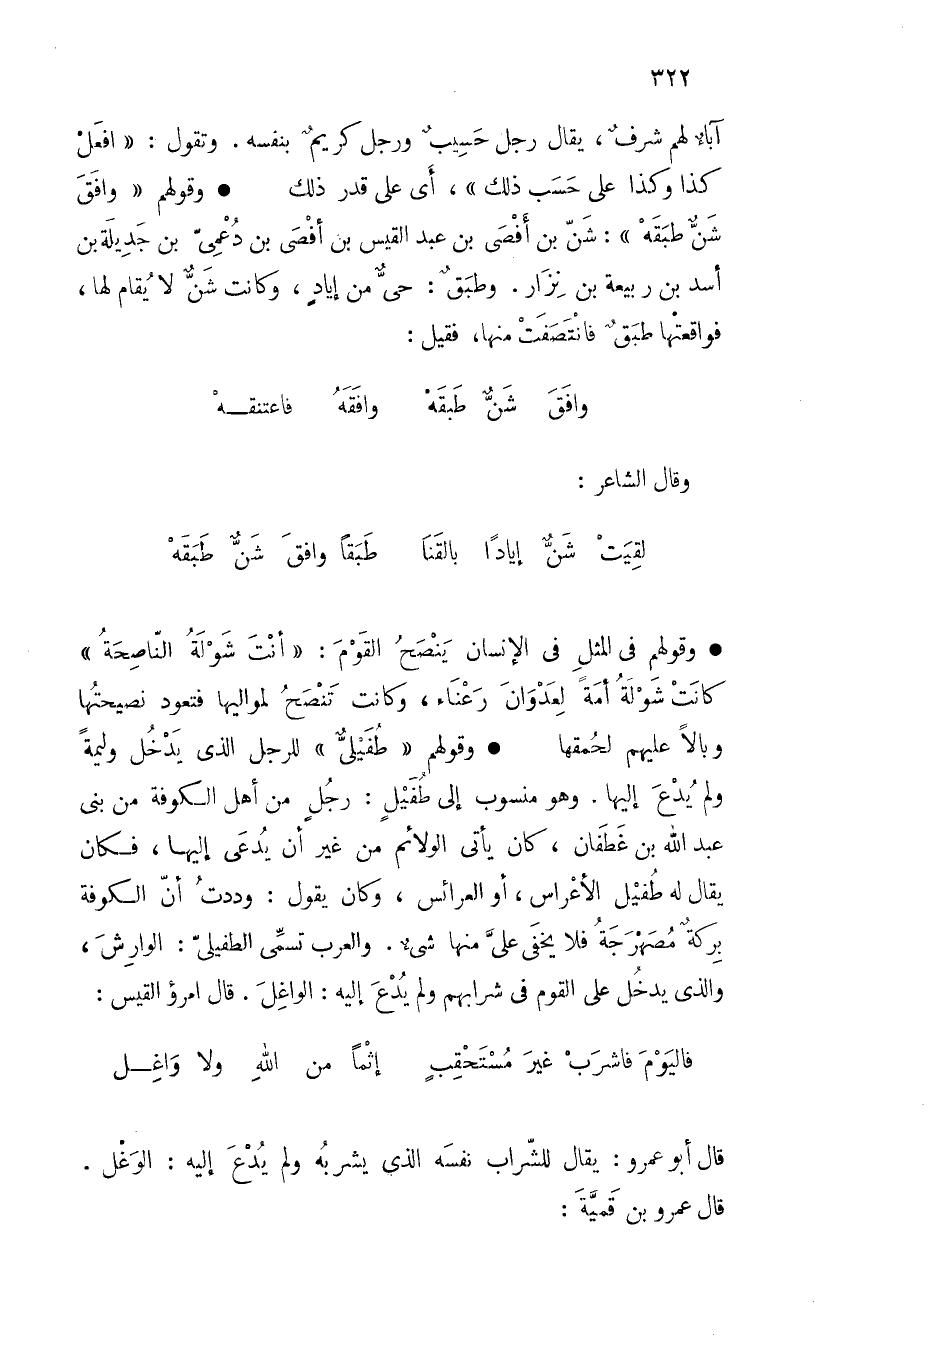 ٣٢٢
آباء لهم شرفٌ، يقال رجل حَسِيبٌ ورجل كريمٌ بنفسه . وتقول : « افعَلْ
كذا وكذا على حَسَب ذلك » ، أَى على قدر ذلك ● وقولهم « وافَقَ
شَنٌّ طبَقَهْ » : شَنّ بن أَفْصَى بن عبد القيس بن أَفْصَى بن دُعْمِىّ بن جَدِيلَة بن
أسد بن ربيعة بن نِزَار . وطبَقٌ : حىٌّ من إيادٍ ، وكانت شَنٌّ لا يُقام لها ،
فواقعتْها طبَقٌ فانْتَصَفَتْ منها، فقيل :
وافَقَ شَنٌّ طَبَقَهْ وافَقَهُ فاعتنقـهْ
وقال الشاعر :
لقِيَتْ شَنٌّ إيادًا بالقَنَا طَبَقاً وافقَ شَنٌّ طَبَقَهْ
● وقولهم فى المثلِ فى الإنسان يَنْصَحُ القَوْمَ : « أنْتَ شَوْلَةُ النّاصِحَةُ »
كانَتْ شَوْلَةُ أمَةً لِعَدْوَانَ رَعْنَاء ، وكانت تَنْصَحُ لمواليها فتعود نصيحتُها
وبالاً عليهم لحُمقها ● وقولهم « طُفَيْلىٌّ » للرجل الذى يَدْخُل وليمةً
ولم يُدْعَ إليها . وهو منسوب إلى طُفَيْلٍ : رجُلٍ من أهل الـكوفة من بنى
عبد الله بن غَطَفان ، كان يأتى الولائم من غير أن يُدعَى إليهـا ، فـكان
يقال له طُفيْل الأعْراس ، أو العرائس ، وكان يقول : وددتُ أنّ الـكوفة
بِركةٌ مُصَهْرَجَةُ فلا يخفَى علىَّ منها شىء . والعرب تسمِّى الطفيلىّ : الوارِشَ ،
والذى يدخُل على القوم فى شرابهم ولم يُدْعَ إليه : الواغِلَ . قال امرؤ القيس :
فاليَوْمَ فاشرَبْ غيرَ مُسْتَحْقِبٍ إثْماً من اللهِ ولا وَاغِـل
قال أبو عمرو : يقال للشّراب نفسَه الذى يشربُه ولم يُدْعَ إليه : الوَغْل .
قال عمرو بن قَميَّةَ :